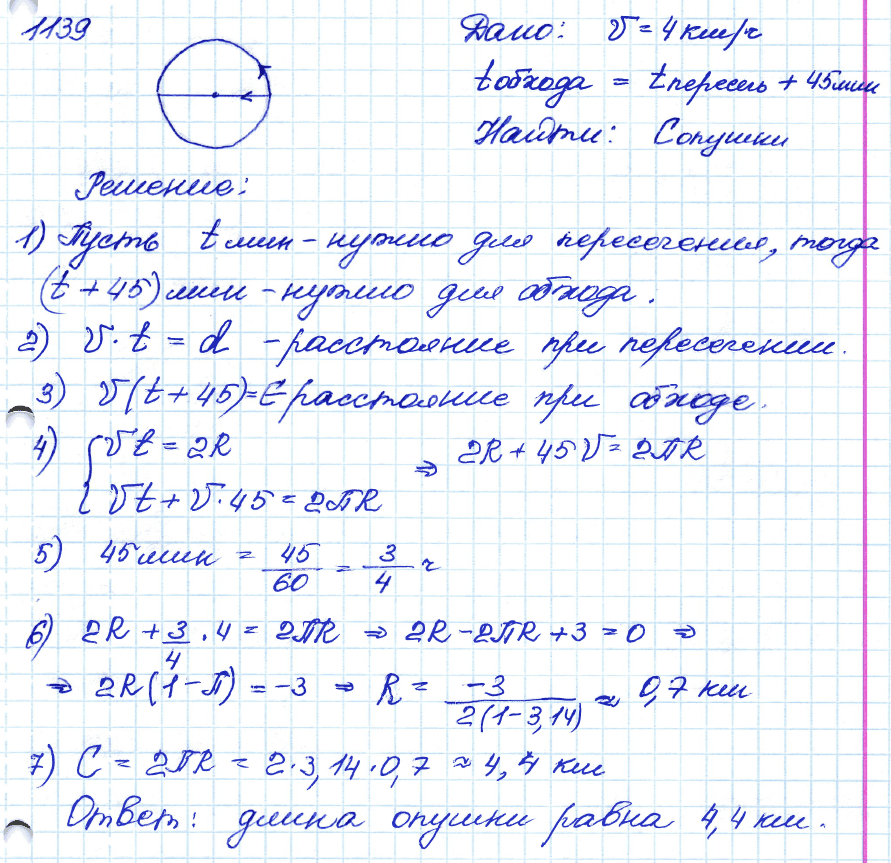 1139
Дано: v = 4 км/ч
t обхода = t пересеч + 45 мин
Найти: C опушки
Решение:
1) Пусть t мин - нужно для пересечения, тогда
(t + 45) мин - нужно для обхода.
2) v · t = d - расстояние при пересечении.
3) v(t + 45) = C расстояние при обходе.
4) { vt = 2R
vt + v · 45 = 2πR ⇒ 2R + 45v = 2πR
5) 45 мин = 45/60 = 3/4 ч
6) 2R + 3/4 · 4 = 2πR ⇒ 2R - 2πR + 3 = 0 ⇒
⇒ 2R(1 - π) = -3 ⇒ R = -3/2(1 - 3,14) ≈ 0,7 км
7) C = 2πR = 2 · 3,14 · 0,7 ≈ 4,4 км
Ответ: длина опушки равна 4,4 км.